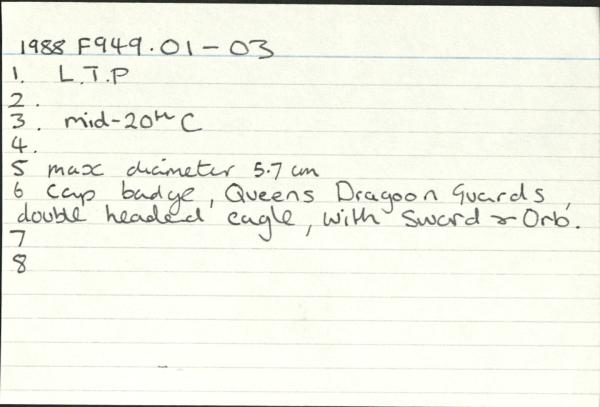 1988 F949.01-03
1. L.T.P
2.
3. mid-20th C
4.
5 max diameter 5.7 cm
6 cap badge, Queens Dragoon Guards,
double headed eagle, with Sword & Orb.
7
8